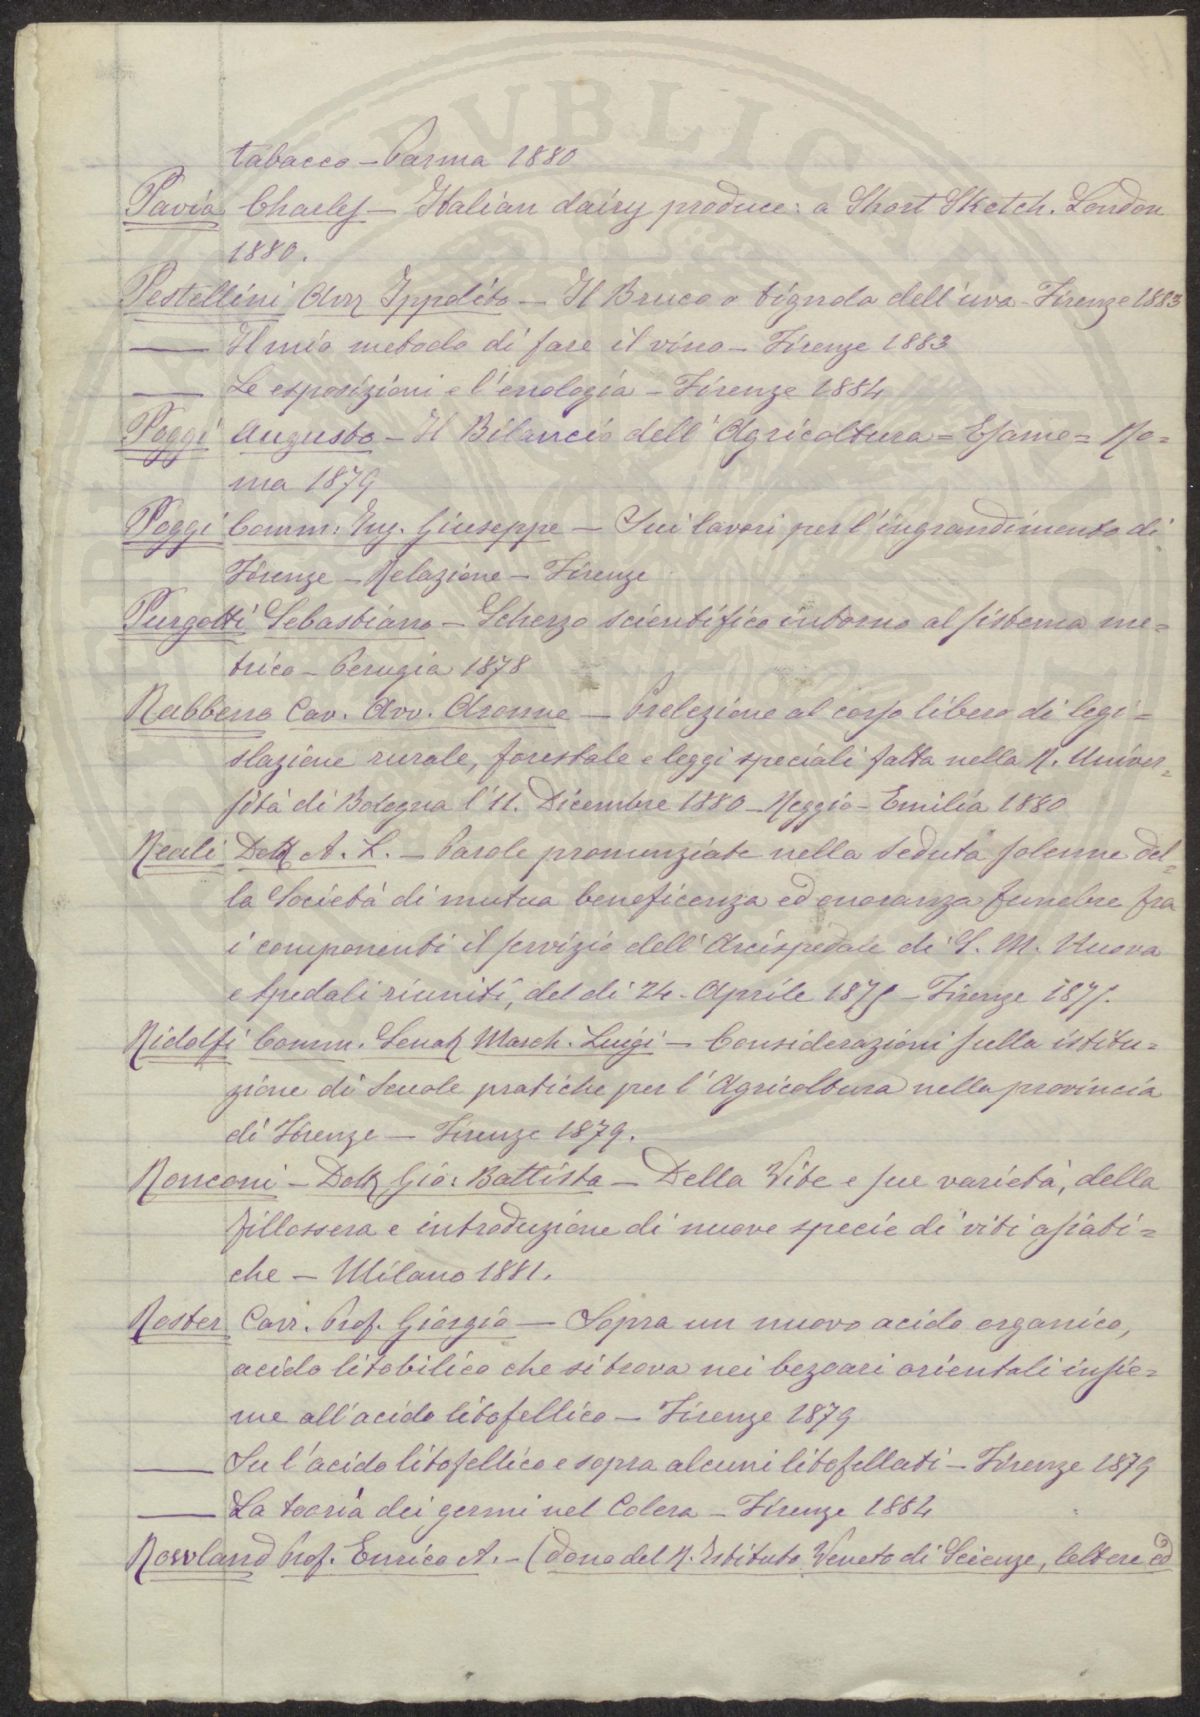 PVBLICAE
tabacco – Parma 1880
Pavia Charles – Italian dairy produce: a Short Sketch. London
1880.
Pestellini Avv Ippolito – Il Bruco o tignola dell'uva – Firenze 1883
—— Il mio metodo di fare il vino – Firenze 1883
—— Le esposizioni e l'enologia – Firenze 1884
Poggi Augusto – Il Bilancio dell'Agricoltura = Esame = Ro=
ma 1879
Poggi Comm: Ing. Giuseppe – Sui lavori per l'ingrandimento di
Firenze – Relazione – Firenze
Purgotti Sebastiano – Scherzo scientifico intorno al sistema me=
trico – Perugia 1878
Rabbeno Cav. Avv. Aronne – Prelezione al corso libero di legi=
slazione rurale, forestale e leggi speciali fatta nella R. Univer=
sità di Bologna l'11. Dicembre 1880 – Reggio – Emilia 1880
Reali Dott A. L. – Parole pronunziate nella seduta solenne del=
la Società di mutua beneficenza ed onoranza funebre fra
i componenti il servizio dell'Arcispedale di S. M. Nuova
e spedali riuniti, del dì 24. Aprile – Firenze
Ridolfi Comm. Senat March. Luigi – Considerazioni sulla istitu=
zione di Scuole pratiche per l'Agricoltura nella provincia
di Firenze – Firenze 1879.
Ronconi – Dott Gio: Battista – Della Vite e sue varietà, della
fillossera e introduzione di nuove specie di viti asiati=
che – Milano 1881.
Roster Cav. Prof. Giorgio – Sopra un nuovo acido organico,
acido litobilico che si trova nei bezoari orientali insie=
me all'acido litofellico – Firenze 1879
—— Su l'acido litofellico e sopra alcuni litofellati – Firenze 1879
—— La teoria dei germi nel Colera – Firenze 1884
Rowland Prof. Enrico A. – (dono del R. Istituto Veneto di Scienze, lettere ed